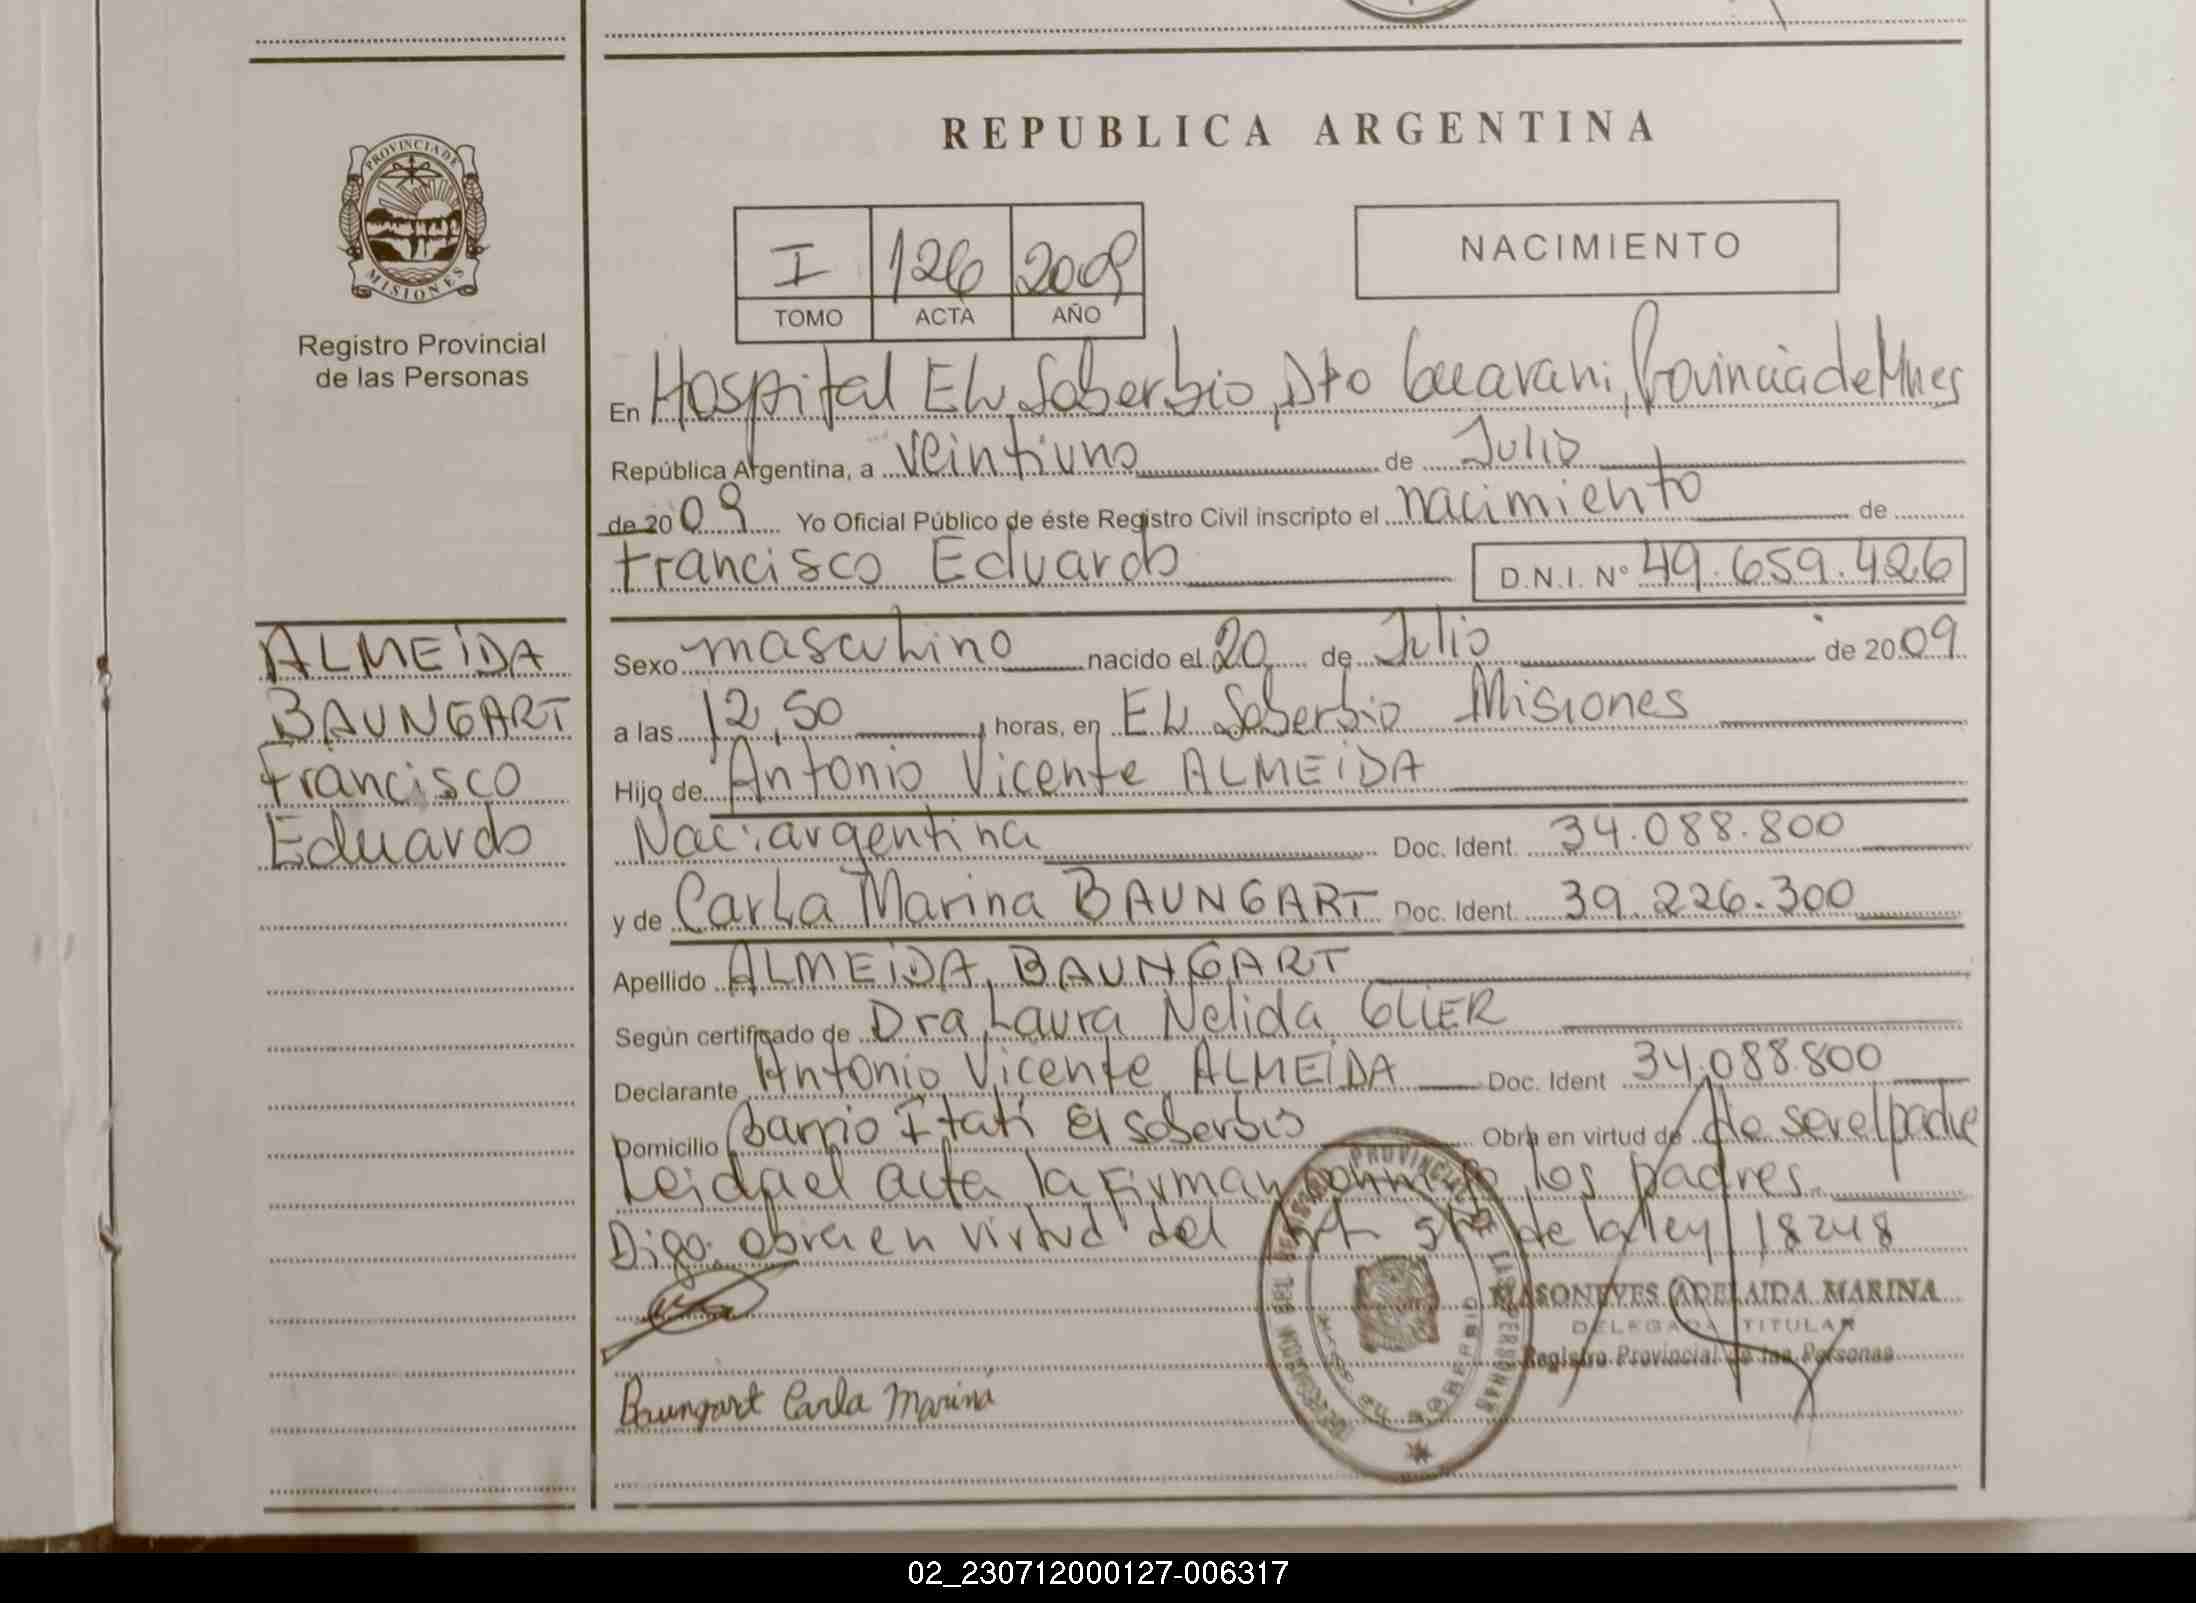 REPUBLICA ARGENTINA
PROVINCIA DE
MISIONES
Registro Provincial
de las Personas
I 126 2009
TOMO ACTA AÑO
NACIMIENTO
En Hospital El Soberbio, Dto Guarani, Provincia de Mnes
República Argentina, a veintiuno de Julio
de 2009 Yo Oficial Público de éste Registro Civil inscripto el nacimiento de
Francisco Eduardo D.N.I. N° 49.659.426
ALMEIDA
BAUNGART
Francisco
Eduardo
Sexo masculino nacido el 20 de Julio de 2009
a las 12,50 horas, en El Soberbio Misiones
Hijo de Antonio Vicente ALMEIDA
Nac: argentina Doc. Ident. 34.088.800
y de Carla Marina BAUNGART Doc. Ident. 39.226.300
Apellido ALMEIDA, BAUNGART
Según certificado de Dra Laura Nelida GLIER
Declarante Antonio Vicente ALMEIDA Doc. Ident 34.088.800
Domicilio Barrio Itatí El Soberbio Obra en virtud de de ser el padre
Leida el acta la firman conmigo los padres
Digo: obra en virtud del Art 5to de la ley 18248
MASONEVES ADELAIDA MARINA
DELEGADA TITULAR
Registro Provincial de las Personas
Baungart Carla Marina
PROVINCIAL
LAS PERSONAS
SOBERBIO
02_230712000127-006317